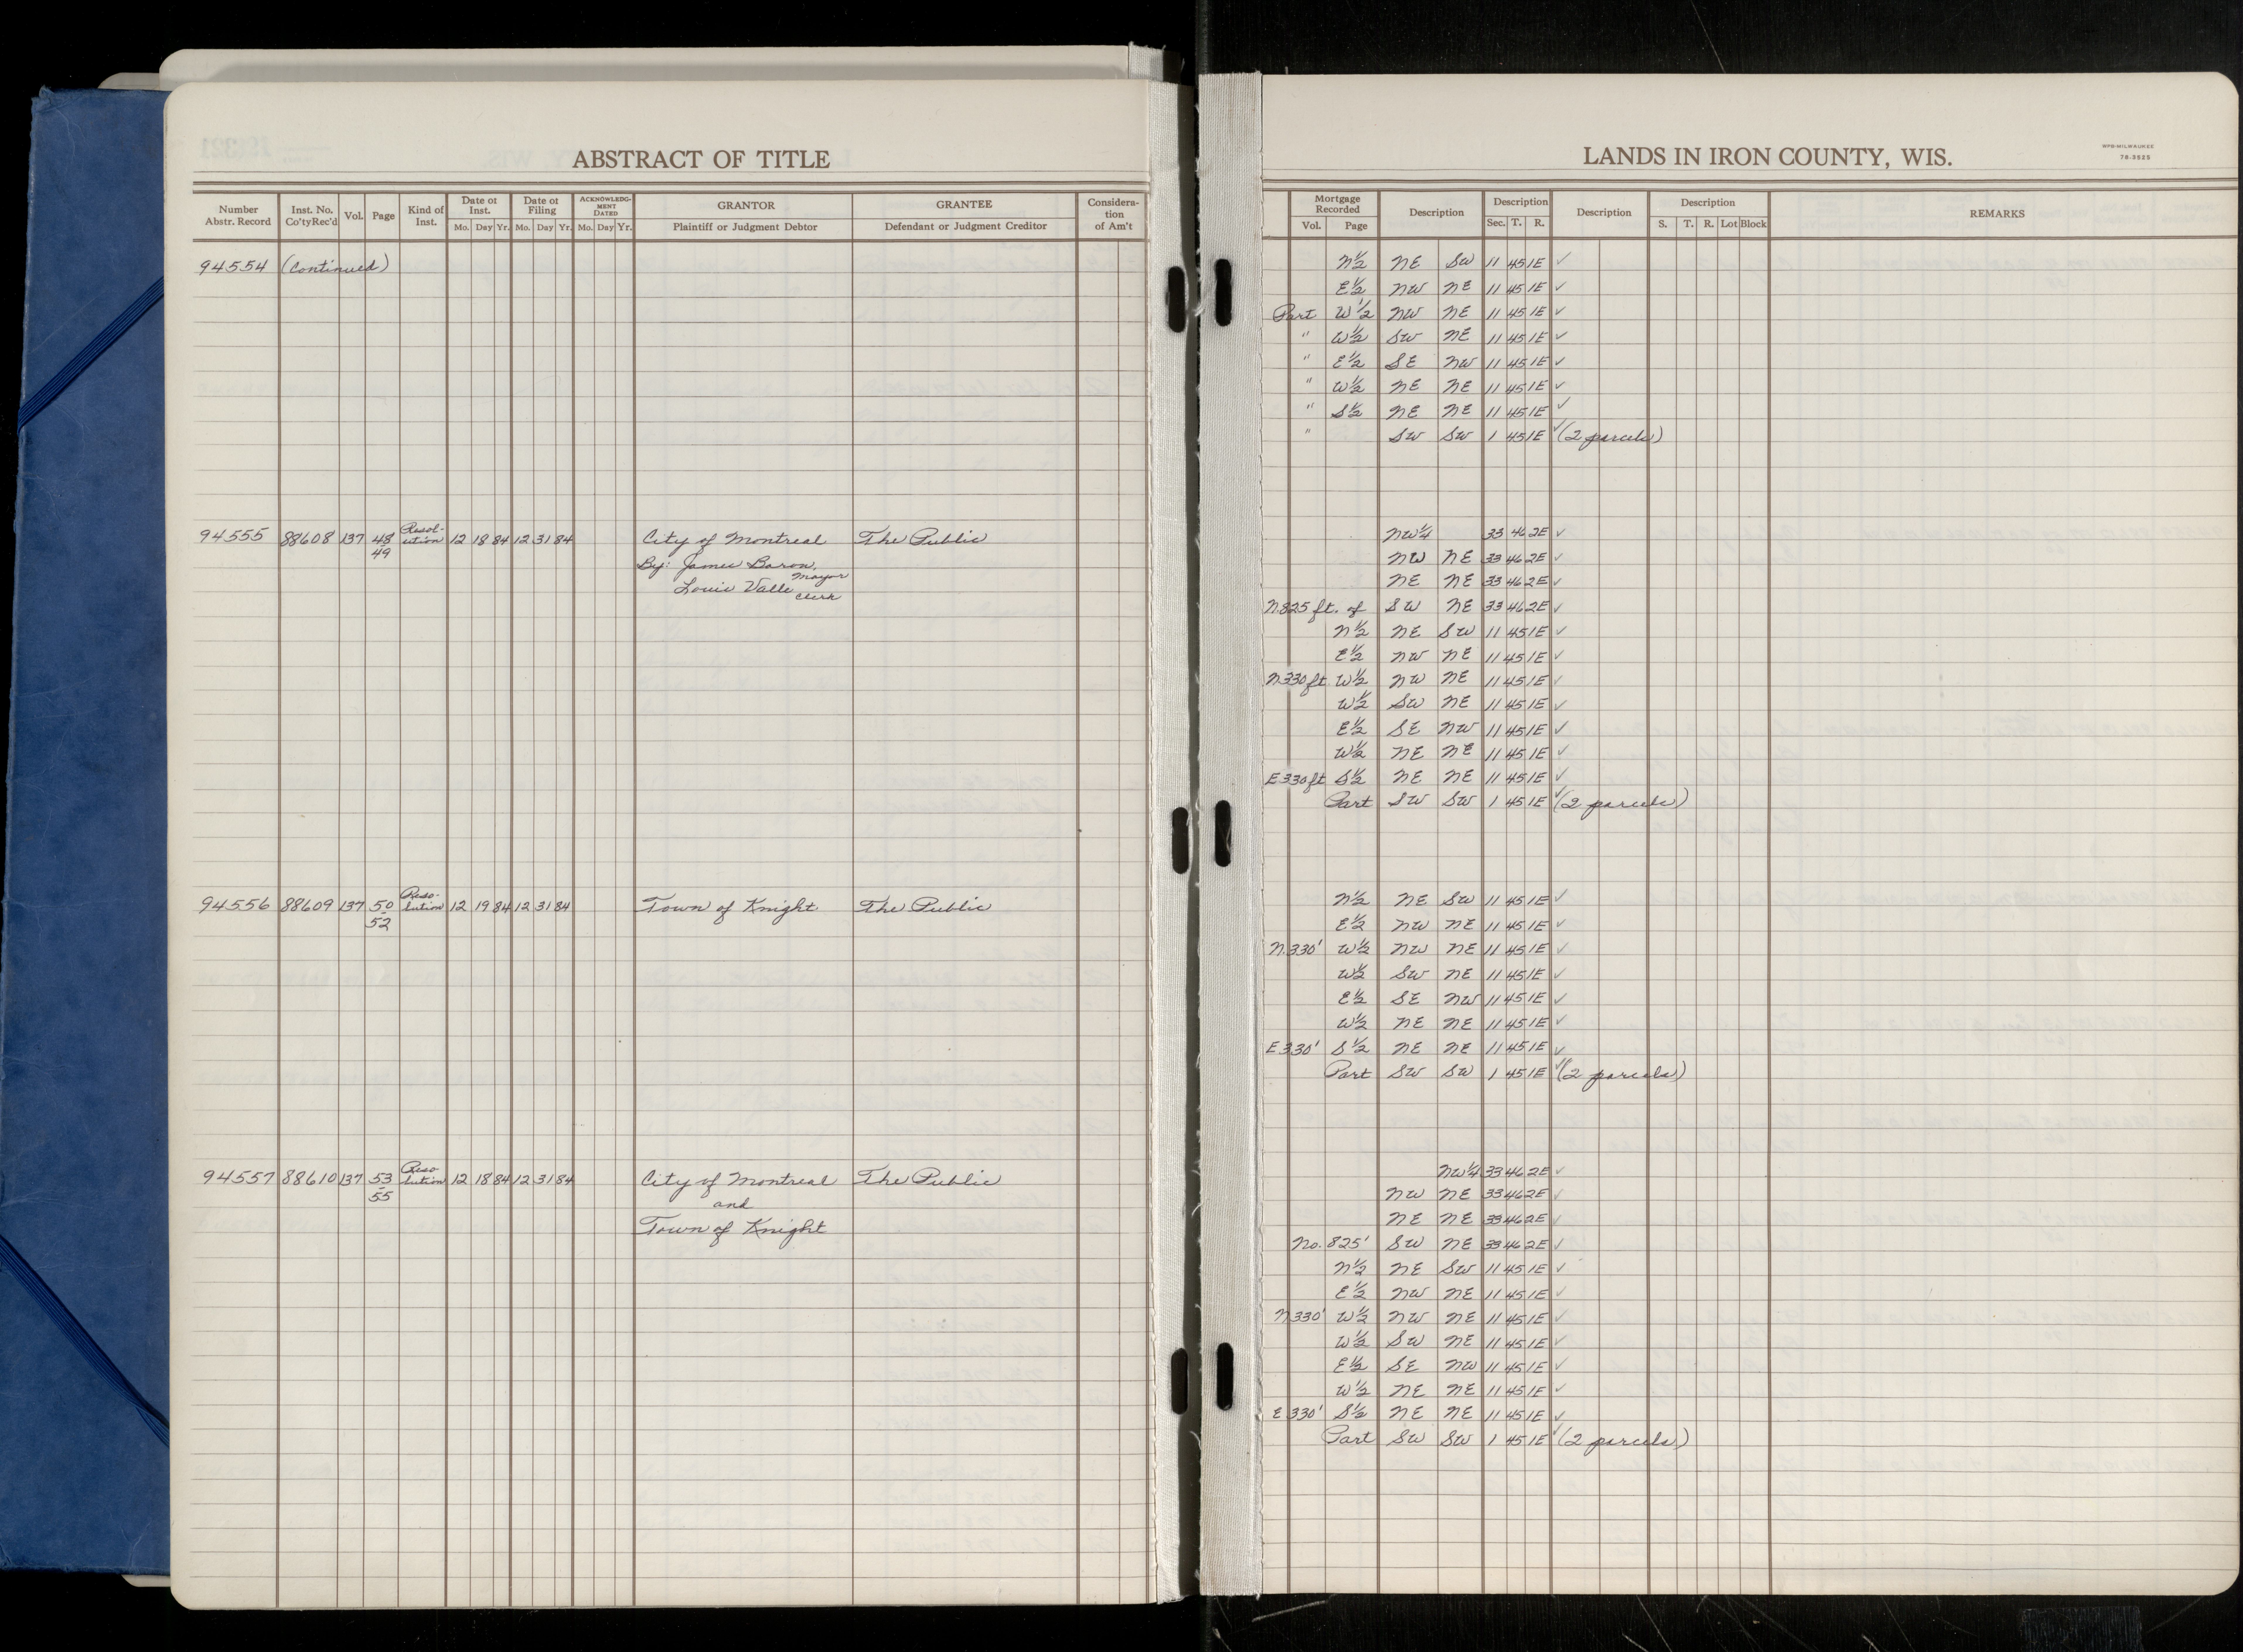 ABSTRACT OF TITLE
Number Abstr. Record | Inst. No. Co'ty Rec'd | Vol. | Page | Kind of Inst. | Date of Inst. Mo. Day Yr. | Date of Filing Mo. Day Yr. | ACKNOWLEDGMENT DATED Mo. Day Yr. | GRANTOR Plaintiff or Judgment Debtor | GRANTEE Defendant or Judgment Creditor | Considera-tion of Am't
94554 (Continued)
94555 88608 137 48 Resol-ution 12 18 84 12 31 84 City of Montreal The Public
49 By: James Baron, Mayor
Louis Valle Clerk
94556 88609 137 50 Reso-lution 12 19 84 12 31 84 Town of Knight The Public
52
94557 88610 137 53 Reso-lution 12 18 84 12 31 84 City of Montreal The Public
55 and
Town of Knight
LANDS IN IRON COUNTY, WIS.
WPB-MILWAUKEE
78-3525
Mortgage Recorded Vol. Page | Description | Description Sec. T. R. | Description | Description S. T. R. Lot Block | REMARKS
N½ NE SW 11 45 1E ✓
E½ NW NE 11 45 1E ✓
Part W½ NW NE 11 45 1E ✓
" W½ SW NE 11 45 1E ✓
" E½ SE NW 11 45 1E ✓
" W½ NE NE 11 45 1E ✓
" S½ NE NE 11 45 1E ✓
" SW SW 1 45 1E ✓ (2 parcels)
NW¼ 33 46 2E ✓
NW NE 33 46 2E ✓
NE NE 33 46 2E ✓
N.825 ft. of SW NE 33 46 2E ✓
N½ NE SW 11 45 1E ✓
E½ NW NE 11 45 1E ✓
N.330 ft W½ NW NE 11 45 1E ✓
W½ SW NE 11 45 1E ✓
E½ SE NW 11 45 1E ✓
W½ NE NE 11 45 1E ✓
E 330 ft S½ NE NE 11 45 1E ✓
Part SW SW 1 45 1E ✓ (2 parcels)
N½ NE SW 11 45 1E ✓
E½ NW NE 11 45 1E ✓
N.330' W½ NW NE 11 45 1E ✓
W½ SW NE 11 45 1E ✓
E½ SE NW 11 45 1E ✓
W½ NE NE 11 45 1E ✓
E 330' S½ NE NE 11 45 1E ✓
Part SW SW 1 45 1E ✓ (2 parcels)
NW¼ 33 46 2E ✓
NW NE 33 46 2E ✓
NE NE 33 46 2E ✓
No. 825' SW NE 33 46 2E ✓
N½ NE SW 11 45 1E ✓
E½ NW NE 11 45 1E ✓
N.330' W½ NW NE 11 45 1E ✓
W½ SW NE 11 45 1E ✓
E½ SE NW 11 45 1E ✓
W½ NE NE 11 45 1E ✓
E 330' S½ NE NE 11 45 1E ✓
Part SW SW 1 45 1E ✓ (2 parcels)